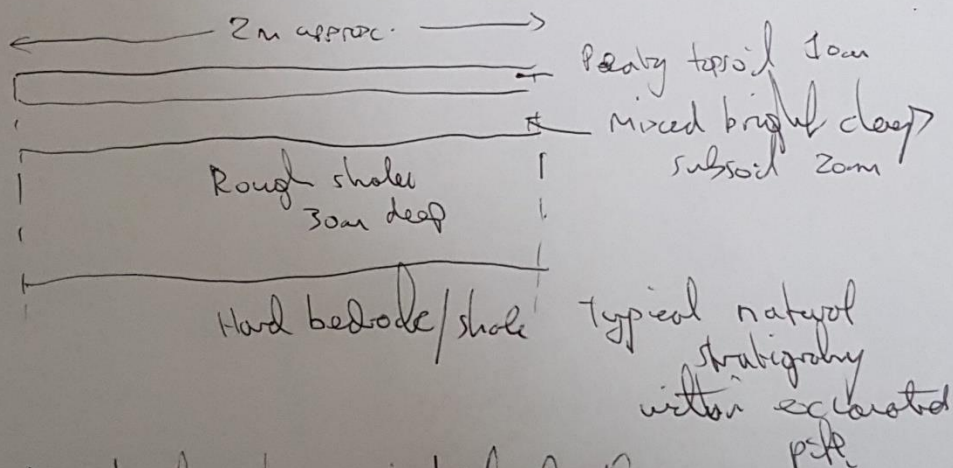 2m approx.
Peaty topsoil 10cm
Mixed bright clay
subsoil 20cm
Rough shale
30cm deep
Hard bedrock/shale
Typical natural
stratigraphy
within excavated